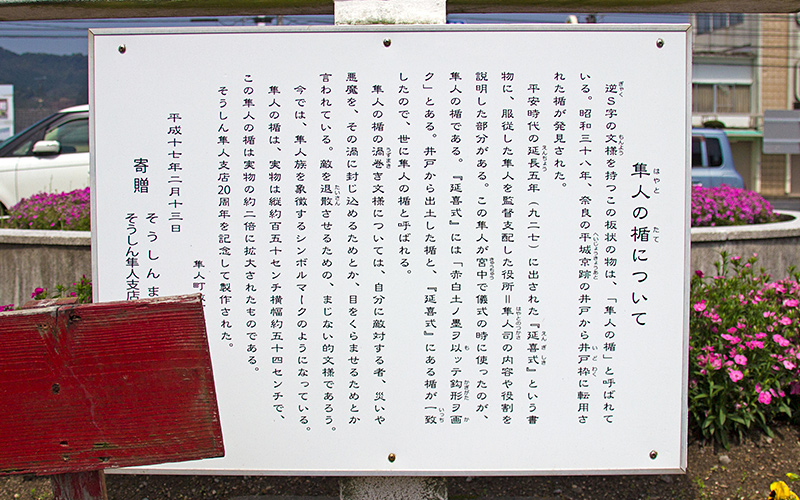 隼人の楯について
逆S字の文様を持つこの板状の物は、「隼人の楯」と呼ばれて
いる。昭和三十八年、奈良の平城京跡の井戸から井戸枠に転用さ
れた楯が発見された。
平安時代の延長五年（九二七）に出された『延喜式』という書
物に、服従した隼人を監督支配した役所＝隼人司の内容や役割を
説明した部分がある。この隼人が宮中で儀式の時に使ったのが、
隼人の楯である。『延喜式』には「赤白土ノ墨ヲ以ッテ鈎形ヲ画
ク」とある。井戸から出土した楯と、『延喜式』にある楯が一致
したので、世に隼人の楯と呼ばれる。
隼人の楯の渦巻き文様については、自分に敵対する者、災いや
悪魔を、その渦に封じ込めるためとか、目をくらませるためとか
言われている。敵を退散させるための、まじない的文様であろう。
今では、隼人族を象徴するシンボルマークのようになっている。
隼人の楯は、実物は縦約百五十センチ横幅約五十四センチで、
この隼人の楯は実物の約二倍に拡大されたものである。
そうしん隼人支店20周年を記念して製作された。
隼人町
平成十七年二月十三日
寄贈
そうしん
そうしん隼人支店